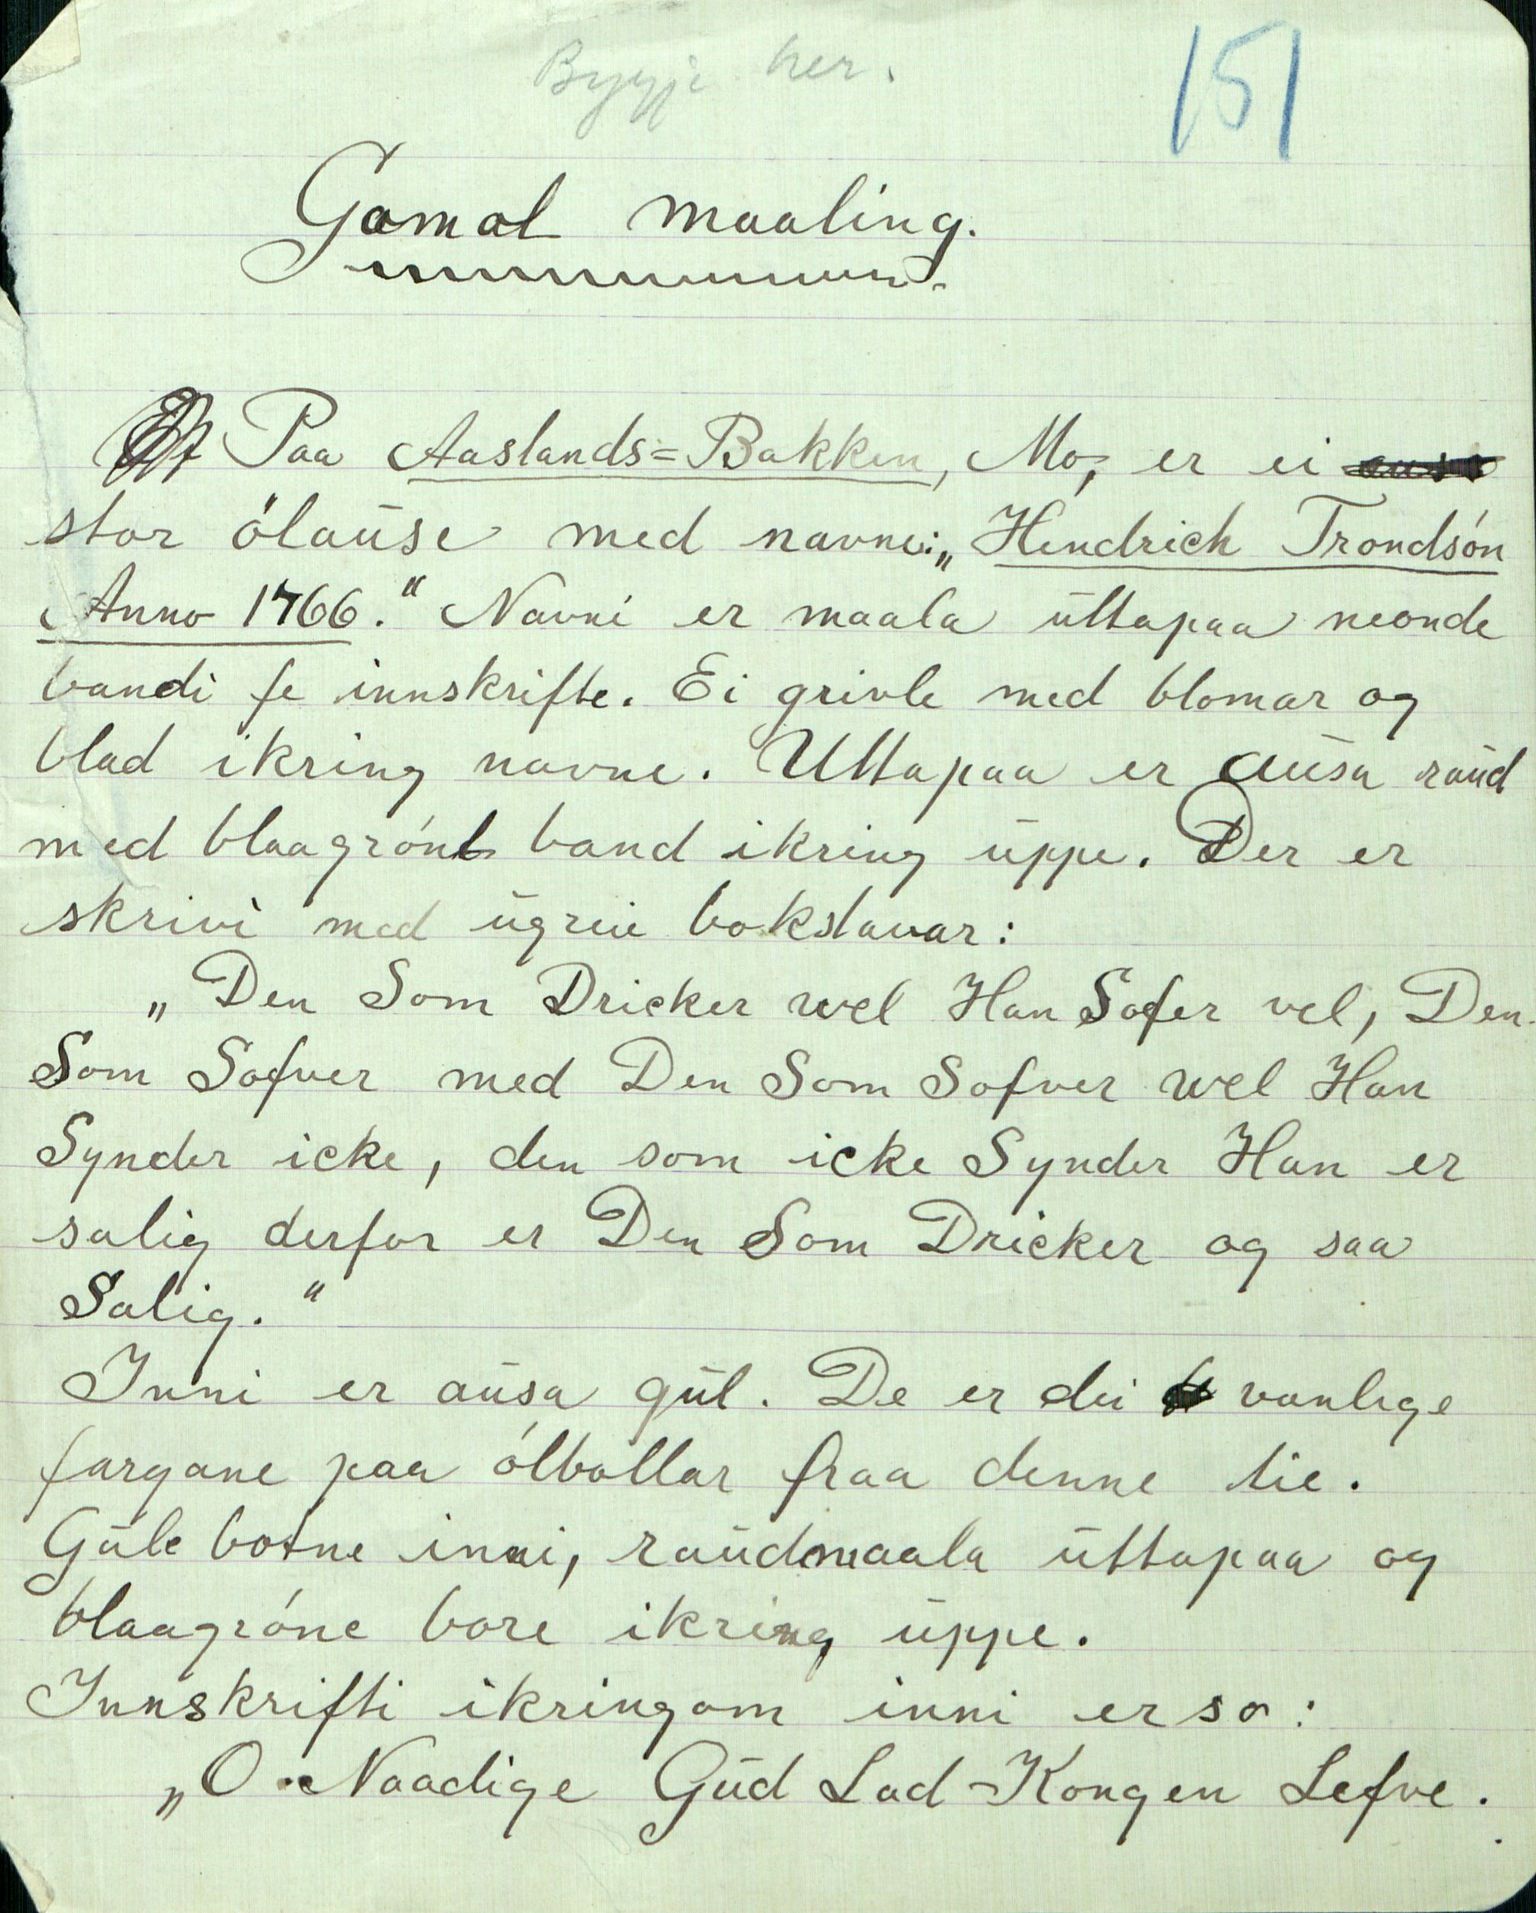 Byggje her.
151
Gamal maaling.
Paa Aaslands=Bakken, Mo, er ei
stor ólaŭse med navne: „Hendrich Trondsón
Anno 1766.“ Navni er maala ŭttapaa neonde
bandi fe innskrifte. Ei grivle med blomar og
blad ikring navne. Uttapaa er aŭsa raŭd
med blaagrónt band ikring ŭppe. Der er
skrivi med ŭgreie bokstavar:
„Den Som Dricker wel Han Sofer vel, Den
Som Sofver med Den Som Sofver wel Han
Synder icke, den som icke Synder Han er
salig derfor er Den Som Dricker og saa
Salig.“
Inni er aŭsa gŭl. De er dei vanlege
fargane paa ólbollar fraa denne tie.
Gŭle botne inni, raŭdmaala ŭttapaa og
blaagróne bore ikring ŭppe.
Innskrifti ikringom inni er so:
„O Naadige Gŭd Lad Kongen Lefve.